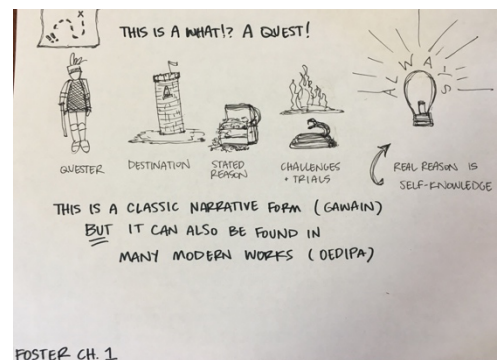 THIS IS A WHAT!? A QUEST!
ALWAYS
QUESTER
DESTINATION
STATED
REASON
CHALLENGES
+ TRIALS
REAL REASON IS
SELF-KNOWLEDGE
THIS IS A CLASSIC NARRATIVE FORM (GAWAIN)
BUT IT CAN ALSO BE FOUND IN
MANY MODERN WORKS (OEDIPA)
FOSTER CH. 1